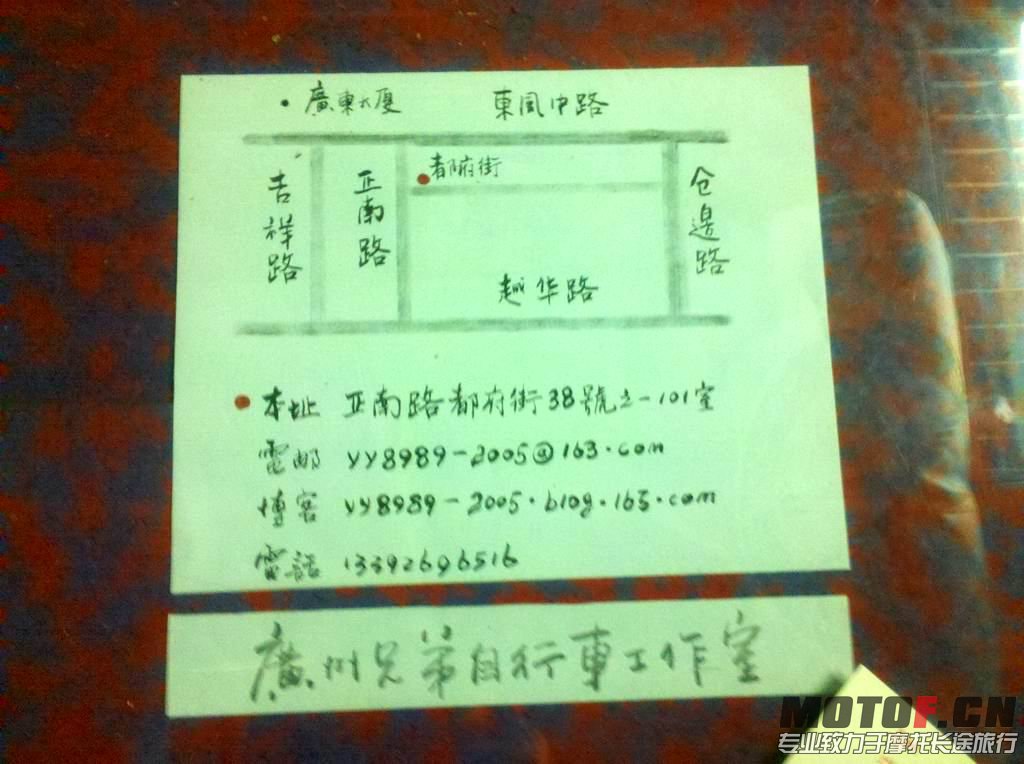 廣東大厦 東風中路
都府街
吉祥路
正南路
仓邊路
越华路
本址 正南路都府街38號之一101室
電邮 yy8989-2005@163.com
博客 yy8989-2005.blog.163.com
電話 13392696516
廣州兄弟自行車工作室
MOTOF.CN
专业致力于摩托长途旅行